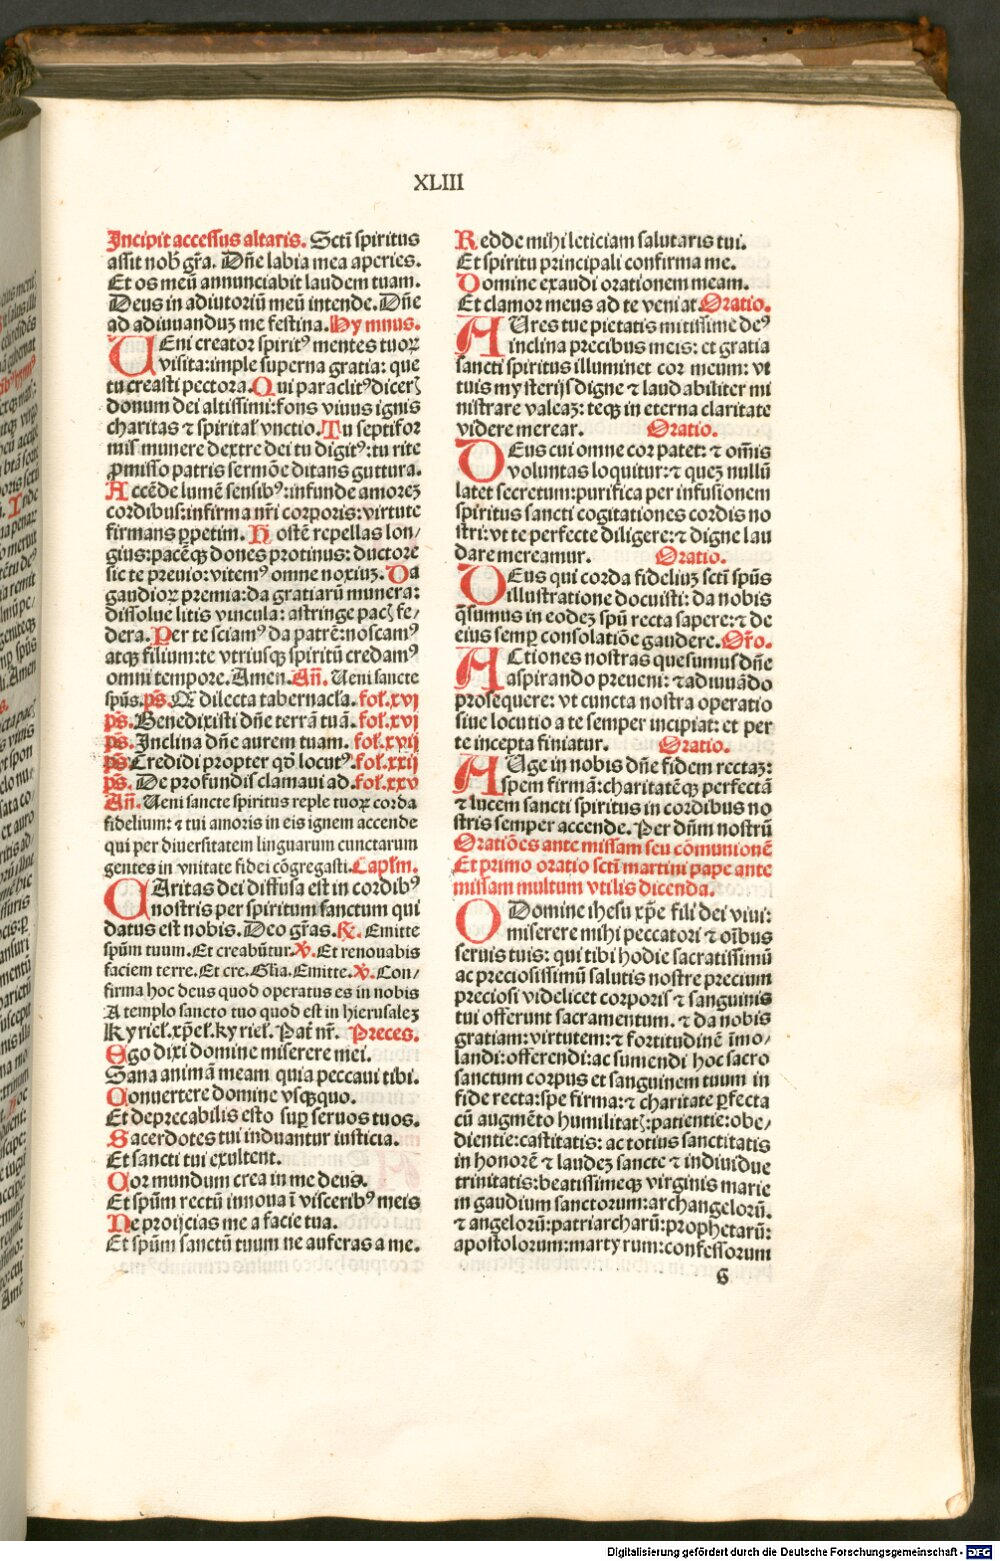 XLIII
Incipit accessus altaris. Sctī spiritus
assit nob̄ gr̄a. Dn̄e labia mea aperies.
Et os meū annunciabit laudem tuam.
Deus in adiutoriū meū intende. Dn̄e
ad adiuuanduꝫ me festina. Hymnus.
VEni creator spiritꝰ mentes tuoꝝ
visita: imple superna gratia: que
tu creasti pectora. Qui paraclitꝰ dicerꝭ
donum dei altissimi: fons viuus ignis
charitas ⁊ spiritaƚ vnctio. Tu septifor
mis munere dextre dei tu digitꝰ: tu rite
ꝓmisso patris sermōe ditans guttura.
Accēde lumē sensibꝰ: infunde amoreꝫ
cordibus: infirma nr̄i corporis: virtute
firmans ꝑpetim. Hostē repellas lon/
gius: pacēqꝫ dones protinus: ductore
sic te preuio: vitemꝰ omne noxiuꝫ. Da
gaudioꝝ premia: da gratiarū munera:
dissolue litis vincula: astringe pacꝭ fe/
dera. Per te sciamꝰ da patrē: noscamꝰ
atqꝫ filium: te vtriusqꝫ spiritū credamꝰ
omni tempore. Amen. Añ. Ueni sancte
spūs. ps̄. Q̄ dilecta tabernacƚa. foƚ. xvj
ps̄. Benedixisti dn̄e terrā tuā. foƚ. xvj
ps̄. Inclina dn̄e aurem tuam. foƚ. xvij
ps̄. Credidi propter qd̄ locutꝰ. foƚ. xxij
ps̄. De profundis clamaui ad. foƚ. xxv
Añ. Ueni sancte spiritus reple tuoꝝ corda
fidelium: ⁊ tui amoris in eis ignem accende
qui per diuersitatem linguarum cunctarum
gentes in vnitate fidei cōgregasti. Caplm̄.
CAritas dei diffusa est in cordibꝰ
nostris per spiritum sanctum qui
datus est nobis. Deo gr̄as. ℟. Emitte
spūm tuum. Et creabūtur. ℣. Et renouabis
faciem terre. Et cre. Gƚia. Emitte. ℣. Con/
firma hoc deus quod operatus es in nobis
A templo sancto tuo quod est in hierusaleꝫ
Kyrieƚ. xp̄eƚ. kyrieƚ. Pat̄ nr̄. Preces.
Ego dixi domine miserere mei.
Sana animā meam quia peccaui tibi.
Conuertere domine vsqꝫquo.
Et deprecabilis esto suꝑ seruos tuos.
Sacerdotes tui induantur iusticia.
Et sancti tui exultent.
Cor mundum crea in me deus.
Et spūm rectū innoua ī viscerib⁹ meis
Ne proijcias me a facie tua.
Et spūm sanctū tuum ne auferas a me.
Redde mihi leticiam salutaris tui.
Et spiritu principali confirma me.
Domine exaudi orationem meam.
Et clamor meus ad te veniat. Oratio.
AUres tue pietatis mitissime deꝰ
inclina precibus meis: et gratia
sancti spiritus illuminet cor meum: vt
tuis mysterijs digne ⁊ laudabiliter mi
nistrare valeaꝫ: teqꝫ in eterna claritate
videre merear. Oratio.
DEus cui omne cor patet: ⁊ om̄is
voluntas loquitur: ⁊ queꝫ nullū
latet secretum: purifica per infusionem
spiritus sancti cogitationes cordis no
stri: vt te perfecte diligere: ⁊ digne lau
dare mereamur. Oratio.
DEus qui corda fideliuꝫ sctī spūs
illustratione docuisti: da nobis
q̄sumus in eodeꝫ spū recta sapere: ⁊ de
eius semꝑ consolatiōe gaudere. Or̄o.
ACtiones nostras quesumus dn̄e
aspirando preueni: ⁊ adiuuādo
prosequere: vt cuncta nostra operatio
siue locutio a te semper incipiat: et per
te incepta finiatur. Oratio.
AUge in nobis dn̄e fidem rectaꝫ:
spem firmā: charitatēqꝫ perfectā
⁊ lucem sancti spiritus in cordibus no
stris semper accende. Per dn̄m nostrū
Oratiōes ante missam seu cōmunionē
Et primo oratio sctī martini pape ante
missam multum vtilis dicenda.
O Domine ihesu xp̄e fili dei viui:
miserere mihi peccatori ⁊ oībus
seruis tuis: qui tibi hodie sacratissimū
ac preciosissimū salutis nostre precium
preciosi videlicet corporis ⁊ sanguinis
tui offerunt sacramentum. ⁊ da nobis
gratiam: virtutem: ⁊ fortitudinē īmo/
landi: offerendi: ac sumendi hoc sacro
sanctum corpus et sanguinem tuum in
fide recta: spe firma: ⁊ charitate ꝑfecta
cū augmēto humilitatꝭ: patientie: obe/
dientie: castitatis: ac totius sanctitatis
in honorē ⁊ laudeꝫ sancte ⁊ indiuidue
trinitatis: beatissimeqꝫ virginis marie
in gaudium sanctorum: archangelorū.
⁊ angelorū: patriarcharū: prophetarū:
apostolorum: martyrum: confessorum
G
Digitalisierung gefördert durch die Deutsche Forschungsgemeinschaft - DFG